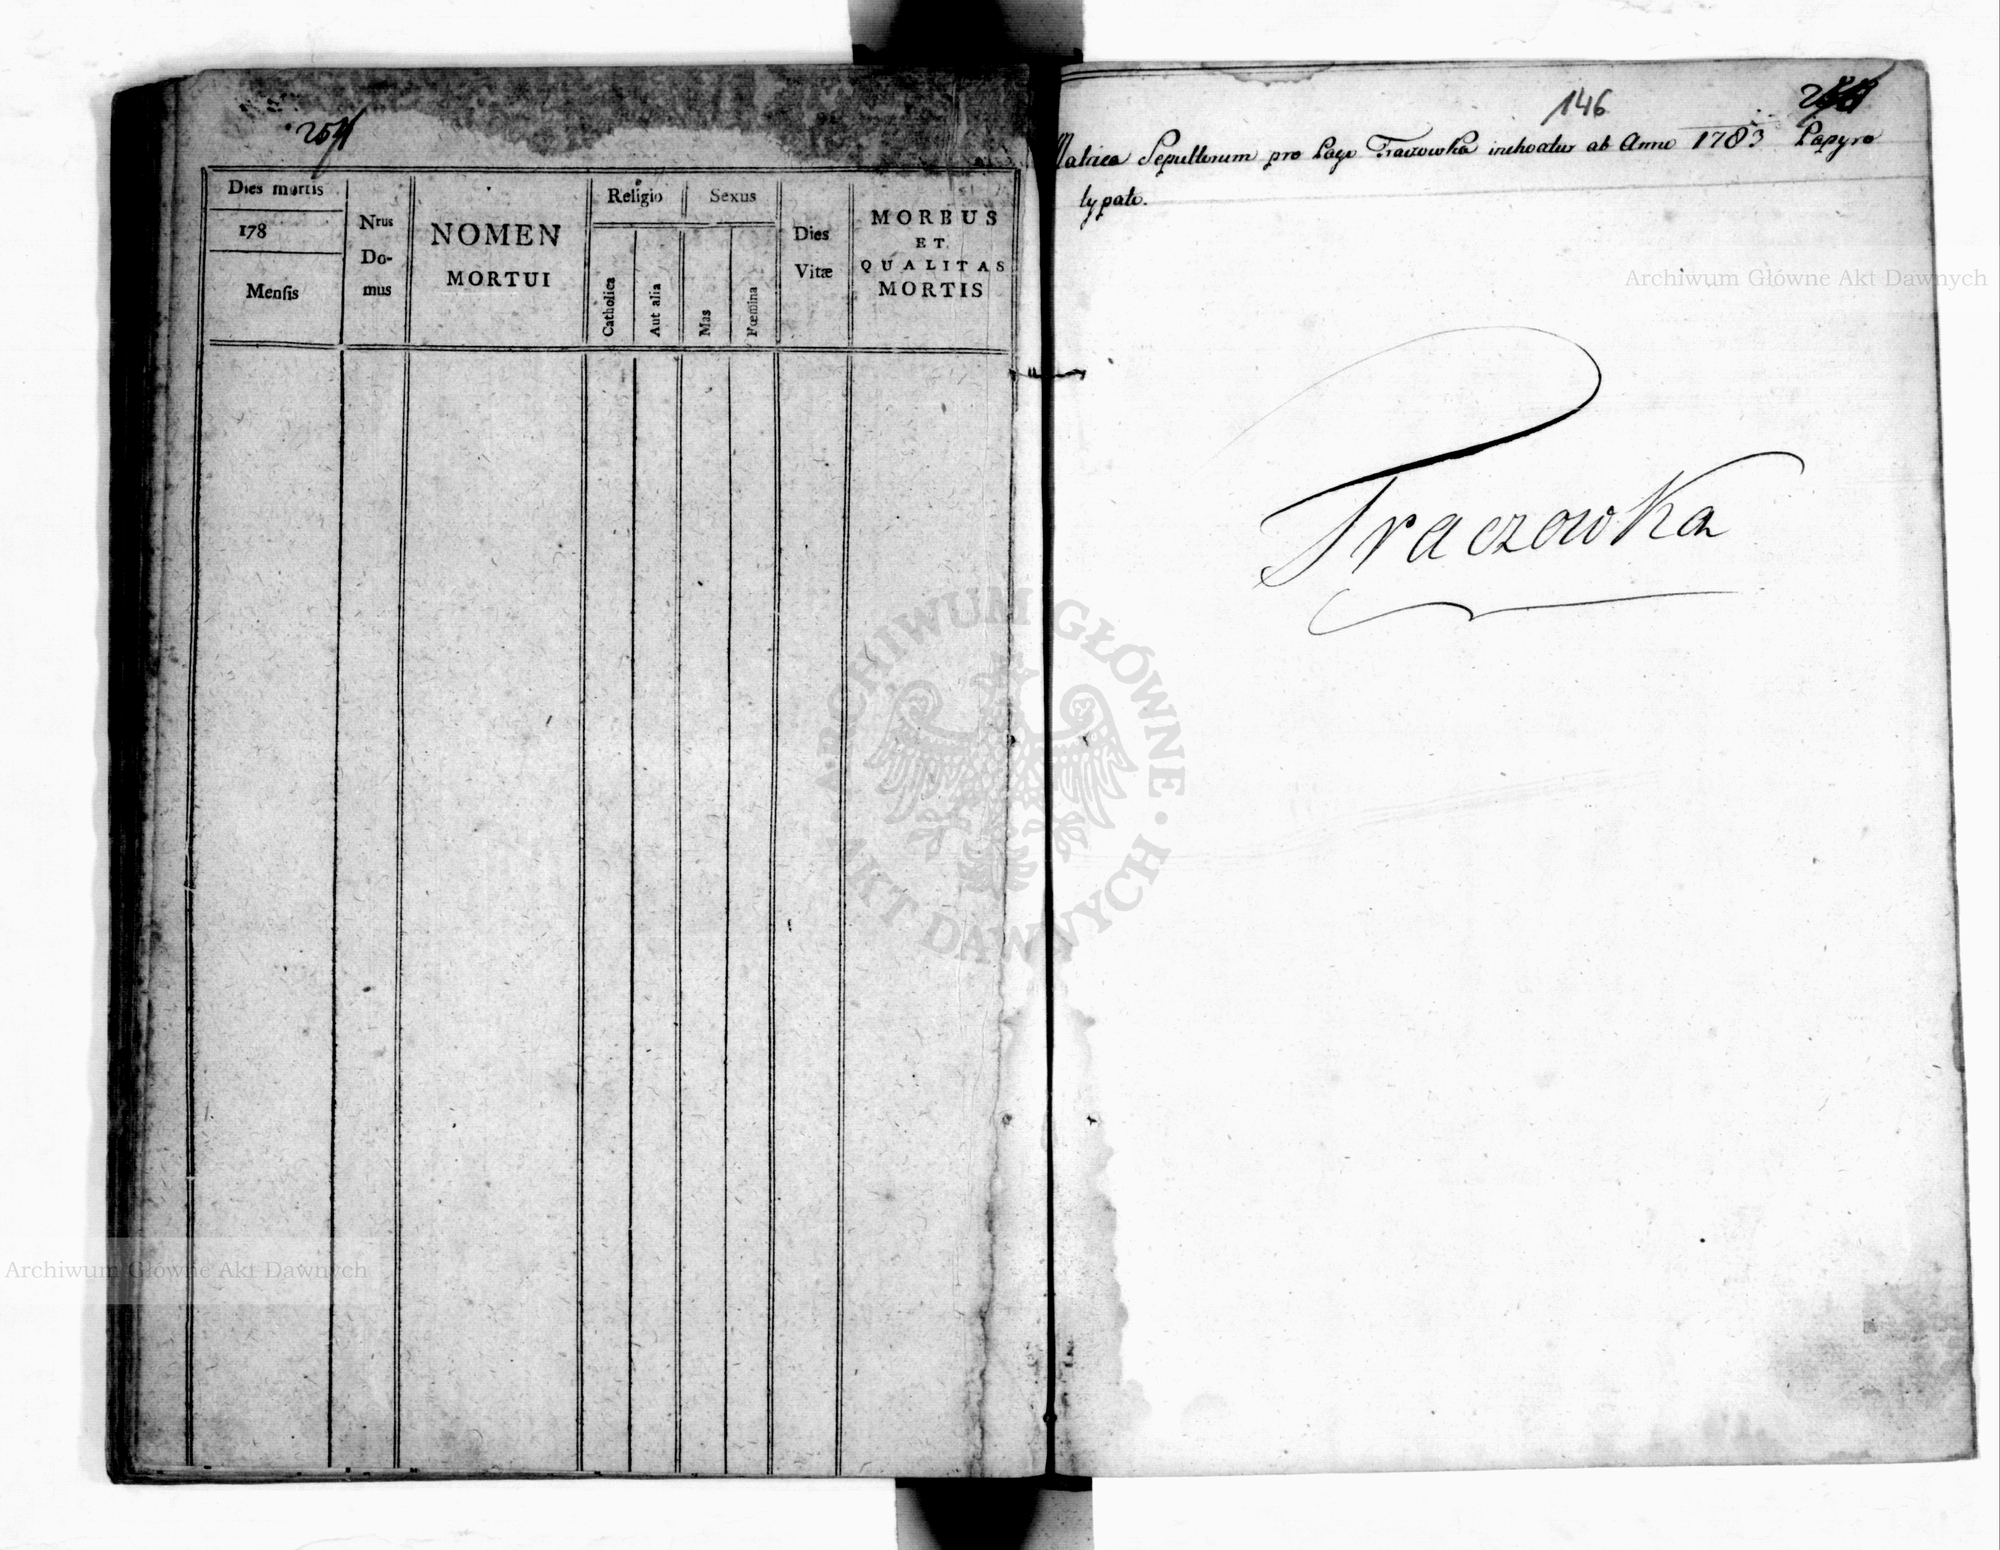 Dies mortis
178
Mensis
Nrus
Do-
mus
NOMEN
MORTUI
Religio
Catholica
Aut alia
Sexus
Mas
Fœmina
Dies
Vitæ
MORBUS
ET
QUALITAS
MORTIS
146
Matrica Sepultorum pro Pago Traczowka inchoatur ab Anno 1783 Papyro
typato.
Traczowka
Archiwum Główne Akt Dawnych
ARCHIWUM GŁÓWNE · AKT DAWNYCH ·
Archiwum Główne Akt Dawnych